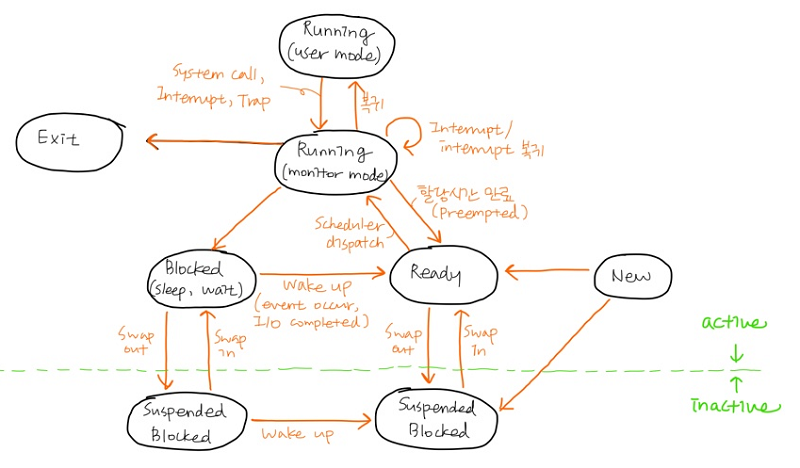 Running
(user mode)
System call,
Interrupt, Trap
복귀
Exit
Running
(monitor mode)
Interrupt/
interrupt 복귀
할당시간 만료
(Preempted)
Scheduler
dispatch
Blocked
(sleep, wait)
Wake up
(event occur,
I/O completed)
Ready
New
Swap
out
Swap
in
Swap
out
Swap
in
active
inactive
Suspended
Blocked
Wake up
Suspended
Blocked